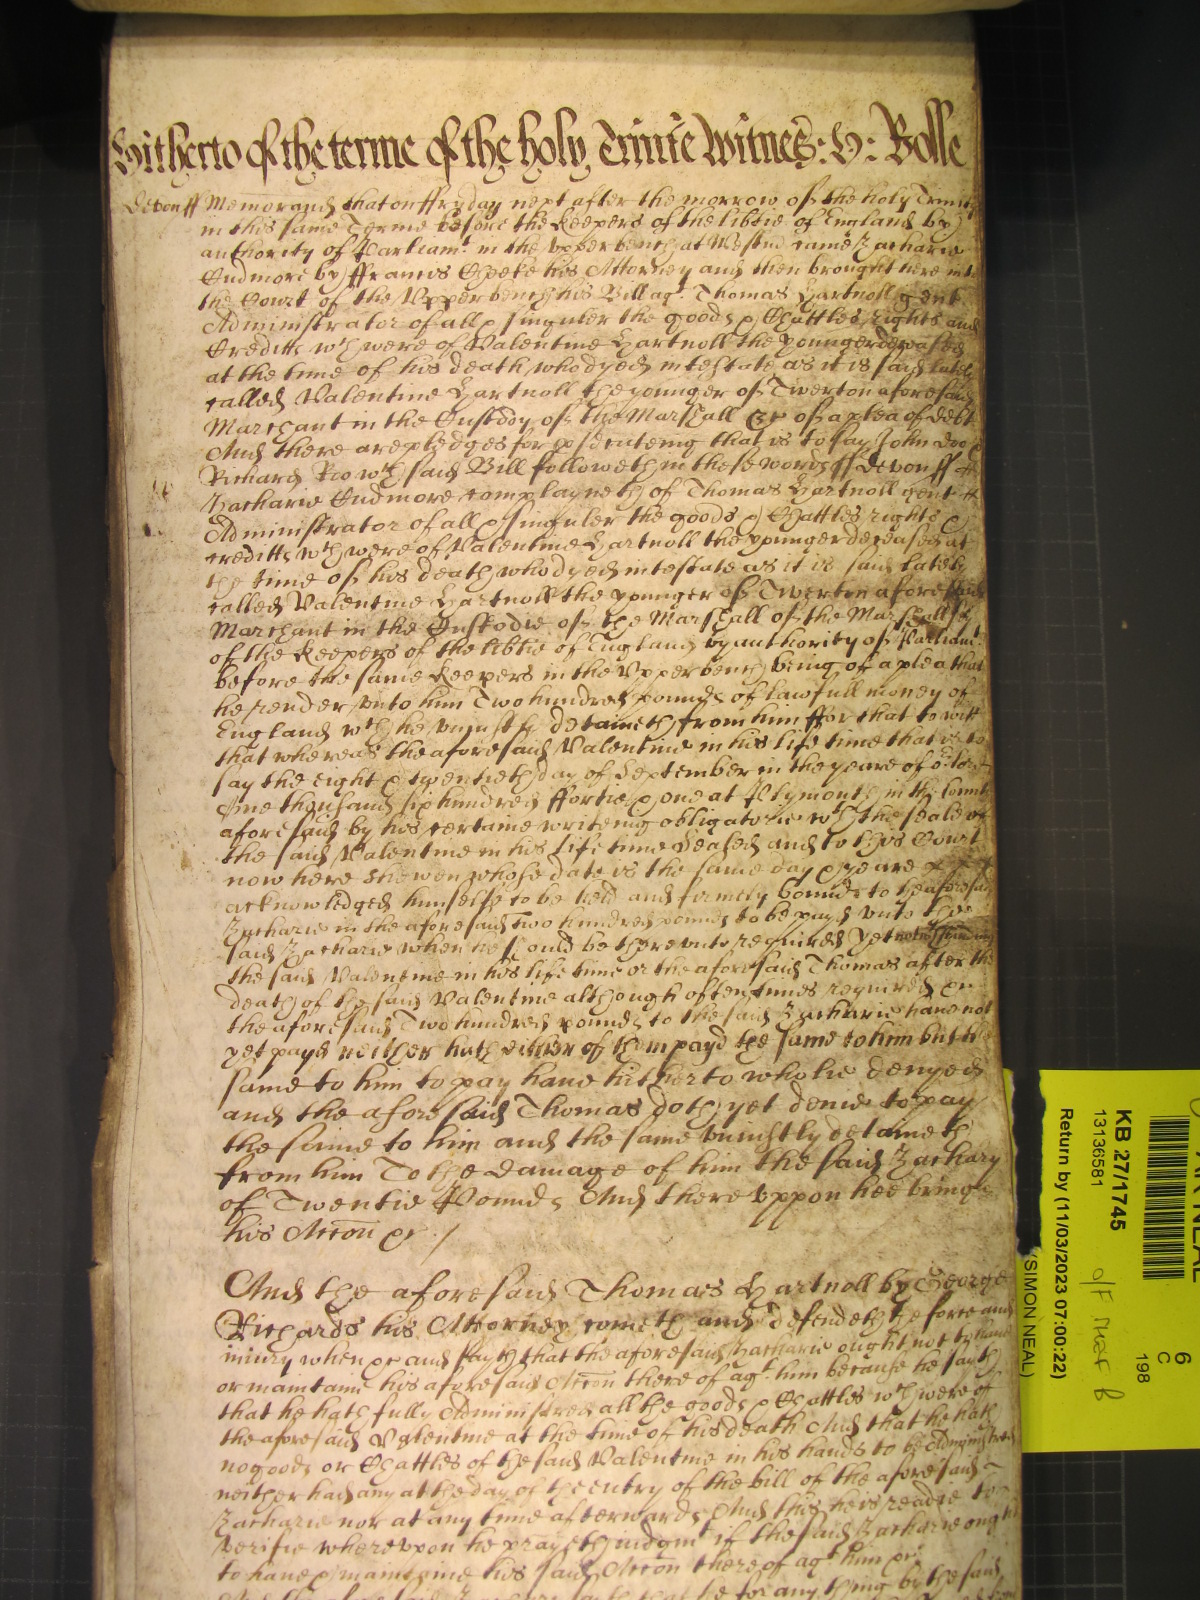 Hitherto of the terme of the holy Trinitie Witnes: H: Rolle
Devon ss Memorand that on ffryday next after the morrow of the holy Trinity
in this same Terme before the Keepers of the libtie of England by
authority of Parliamt in the upper bench at Westmr came Zacharie
Cudmore by ffrancis Cheeke his Attorney and then brought here into
the Court of the Upper bench his Bill agt Thomas Hartnoll gent
Administrator of all & singuler the goods & Chattles rights and
Creditts wch were of Valentine Hartnoll the younger deceased
at the time of his death who dyed intestate as it is said lately
called Valentine Hartnoll the younger of Twerton aforesaid
Marchant in the Custody of the Marshall &c of a plea of debt
And there are pledges for psecuteing that is to say John Doo &
Richard Roo wch said Bill followeth in these words ss Devon ss
Zacharie Cudmore complayneth of Thomas Hartnoll gent
Administrator of all & singuler the goods & Chattles rights &
creditts wch were of Valentine Hartnoll the younger deceased at
the time of his death who dyed intestate as it is said lately
called Valentine Hartnoll the younger of Twerton aforesaid
Marchant in the Custodie of the Marshall of the Marshallsey
of the Keepers of the libtie of England by authority of Parliamt
before the same Keepers in the Upper bench being of a plea that
he render unto him Two hundred pounds of lawfull money of
England wch he uniustly detaineth from him ffor that to witt
that whereas the aforesaid Valentine in his life time that is to
say the eight & twentieth day of September in the yeare of or Lord
One thousand six hundred ffortie & one at Plymouth in the County
aforesaid by his certaine writeing obligatorie wth the seale of
the said Valentine in his life time Sealed and to this Court
now here shewen whose date is the same day & yeare
acknowledged himselfe to be held and firmely bound to the aforesaid
Zacharie in the aforesaid two hundred pounds to be payd unto the
said Zacharie when he should be thereunto required Yet notwthstanding
the said Valentine in his life time or the aforesaid Thomas after the
death of the said Valentine although oftentimes required &c
the aforesaid Two hundred pounds to the said Zacharie have not
yet payd neither hath either of them payd the same to him but the
same to him to pay have hitherto wholie denyed
and the aforesaid Thomas doth yet denie to pay
the same to him and the same uniustly detaineth
from him To the damage of him the said Zachary
of Twentie Pounds And thereuppon hee brings
his Accon &c /
And the aforesaid Thomas Hartnoll by George
Richards his Attorney cometh and defendeth the force and
iniury when &c and sayth that the aforesaid Zacharie ought not to have
or maintaine his aforesaid Accon thereof agt him because he sayth
that he hath fully Administred all the goods & Chattles wch were of
the aforesaid Valentine at the time of his death And that he hath
no goods or Chattles of the said Valentine in his hands to be Administred
neither had any at the day of the entry of the bill of the aforesaid
Zacharie nor at any time afterwards And this he is readie to
verifie whereupon he prayeth iudgmt if the said Zacharie ought
to have & maintaine his said Accon thereof agt him &c
KB 27/1745
13136581
Return by (11/03/2023 07:00:22)
(SIMON NEAL)
6
C
198